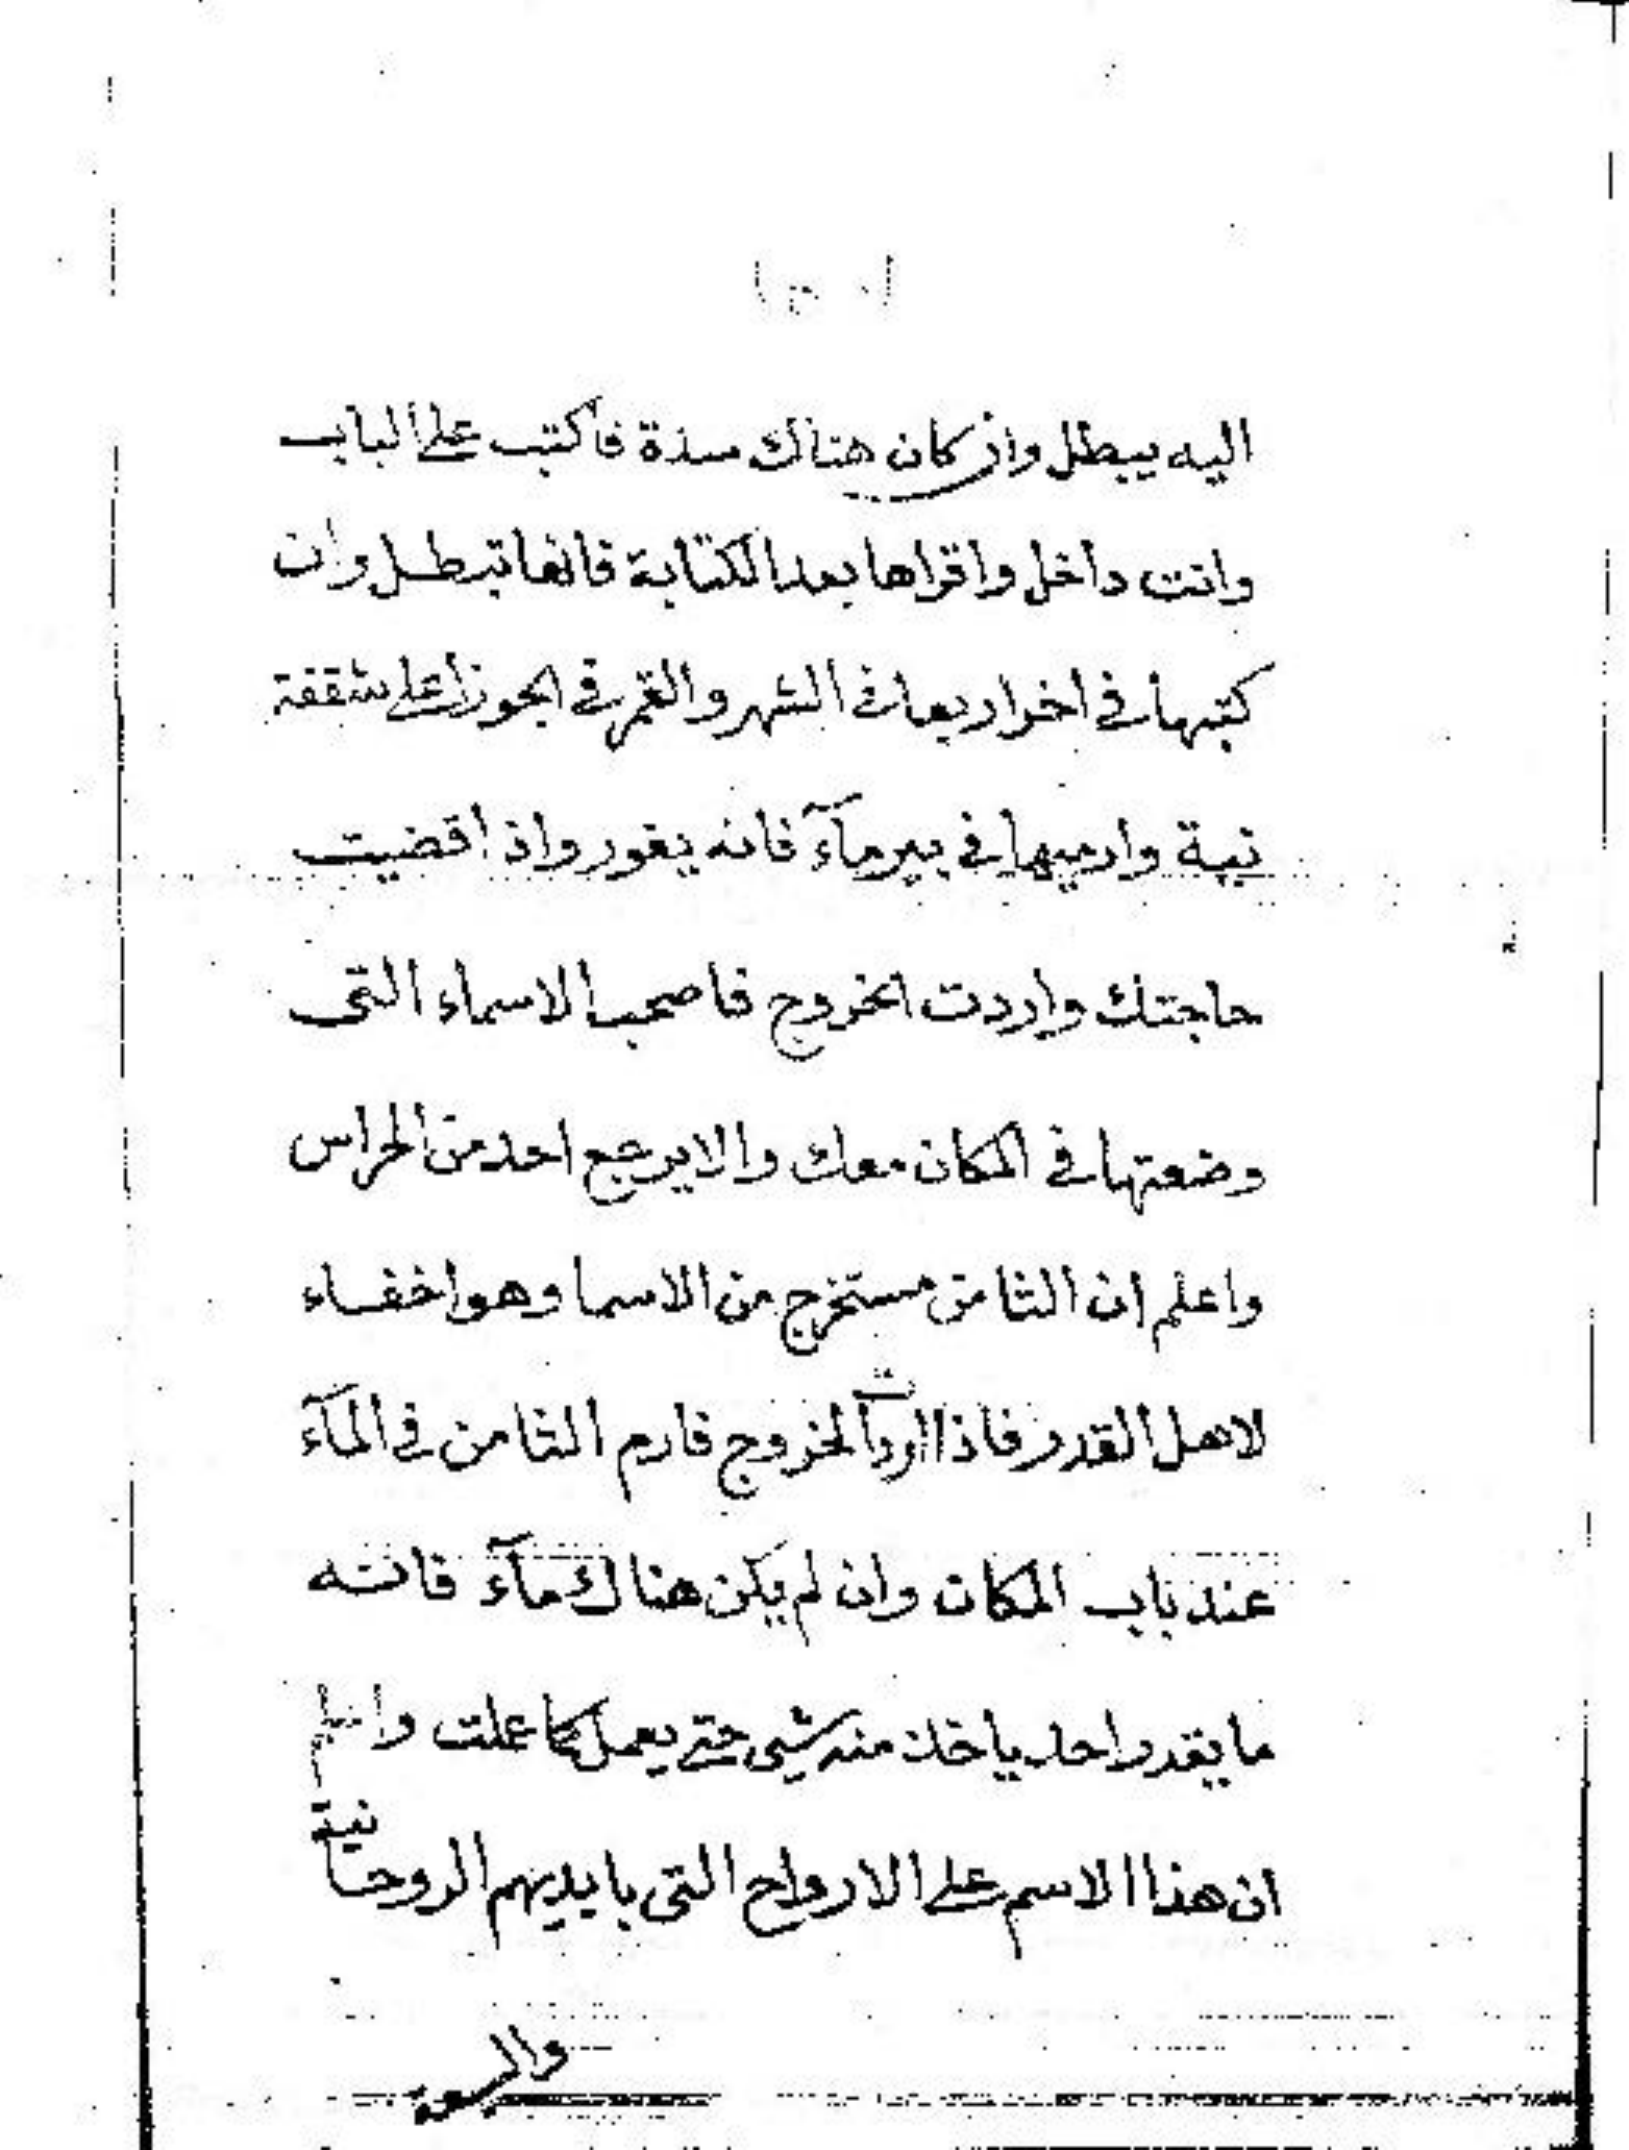 اليه يبطل وان كان هناك سدة فاكتب على الباب
وانت داخل واقراها بعد الكتابة فانها تبطل وان
كتبها في اخر اربعا في الشهر والقمر في الجوزا على شقفة
نية وارميها في بير مآء فانه يغور واذا قضيت
حاجتك واردت الخروج فاصحب الاسماء التى
وضعتها في المكان معك والا يرجع احد من الحراس
واعلم ان الثامن مستخرج من الاسما وهو اخفاء
لاهل القدر فاذا اردت الخروج فارم الثامن في المآء
عند باب المكان وان لم يكن هناك مآء فانه
ما يقدر احد ياخذ منه شي حتى يعمل كما عملت واعلم
ان هذا الاسم على الارواح التى بايديهم الروحانية